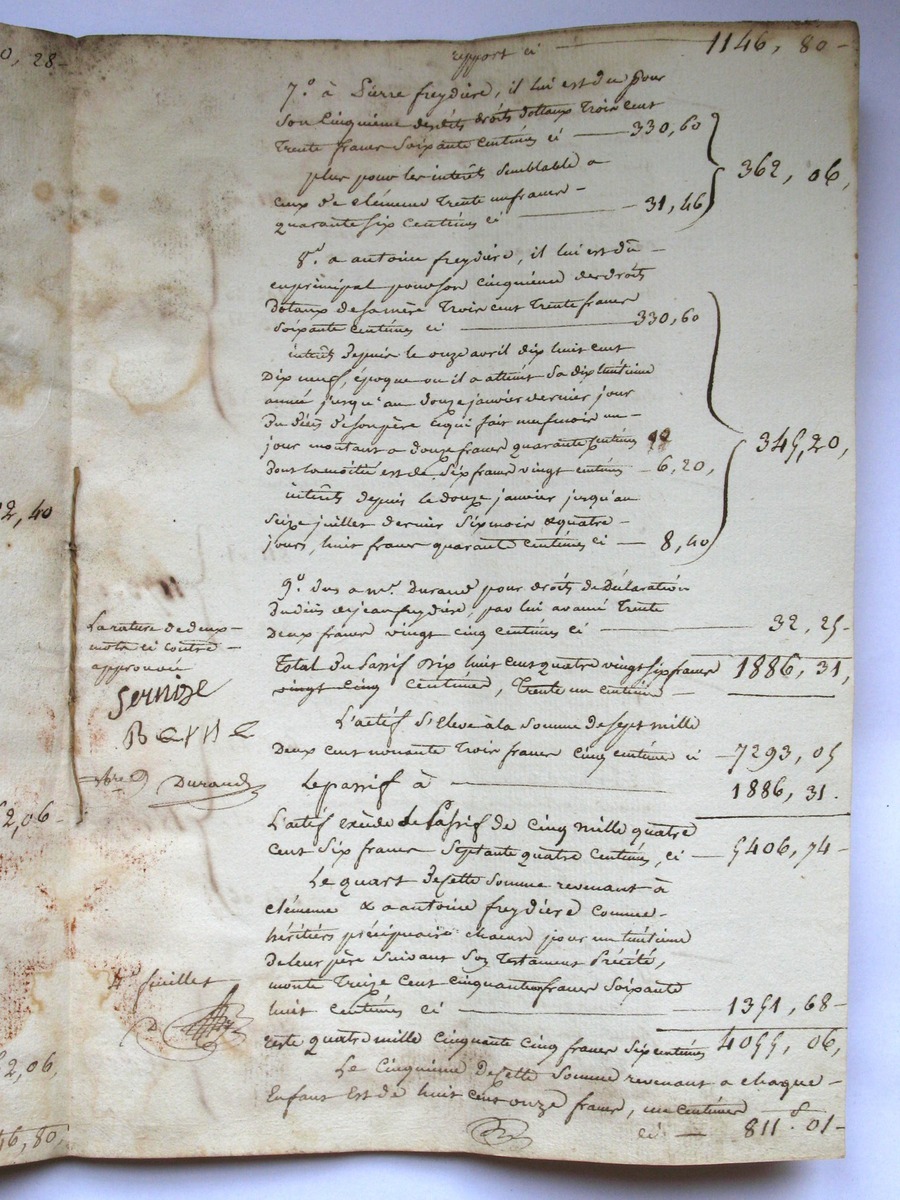 0, 28-
2, 40
2,06-
2,06,
46, 80,
report ci 1146, 80-
7.° à Pierre freydiere, il lui est du pour
son Cinquieme desdits droits dottaux Trois cent
Trente francs soixante centimes ci 330,60
plus pour les interêts semblable a
ceux de clémence Trente un francs
quarante six centimes ci 31,46
362, 06,
8.° a antoine freydiere, il lui est dû
en principal pour son cinquieme des droits
Dotaux de sa mère Trois cent Trente francs
soixante centimes ci 330,60
interêts depuis le onze avril dix huit cent
Dix neuf, époque ou il a atteint sa dix huitieme
année jusqu'au douze janvier dernier jour
du décès de son père ce qui fait neuf mois un
jour montant a douze francs quarante centimes
dont la moitié est de six francs vingt centimes 6,20,
interêts depuis le douze janvier jusqu'au
seize juillet dernier six mois & quatre
jours, huit francs quarante centimes ci 8,40
345,20,
9.° Dus a m.e Durand pour droits de Déclaration
du décès de jean freydiere, par lui avancé Trente
deux francs vingt cinq centimes ci 32, 25-
Total du Passif dix huit cent quatre vingt six francs 1886, 31,
vingt cinq centimes, Trente un centimes
La rature de deux
mots ci contre
approuvée
sernize
Durand
L'actif s'eleve à la somme de sept mille
Deux cent nonante Trois francs cinq centimes ci 7293, 05
Le passif à 1886, 31.
L'actif exède le Passif de cinq mille quatre
cent six francs septante quatre centimes, ci 5406, 74-
Le quart de cette somme revenant à
clémence & a antoine freydiere comme
héritiers précipuaire chacun pour un huitieme
de leur père suivant son Testament Précité,
monte Treize cent cinquante un francs soixante
huit centimes ci 1351, 68-
reste quatre mille cinquante cinq francs six centimes 4055, 06,
4.e feuillet
D
Le Cinquieme de cette somme revenant a chaque
Enfant est de huit cent onze francs, un centime
ci 811. 01-